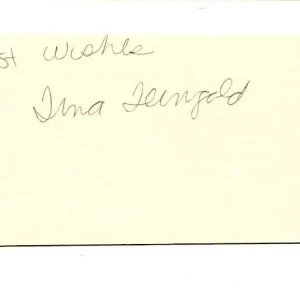 st Wishes
Tina Feingold